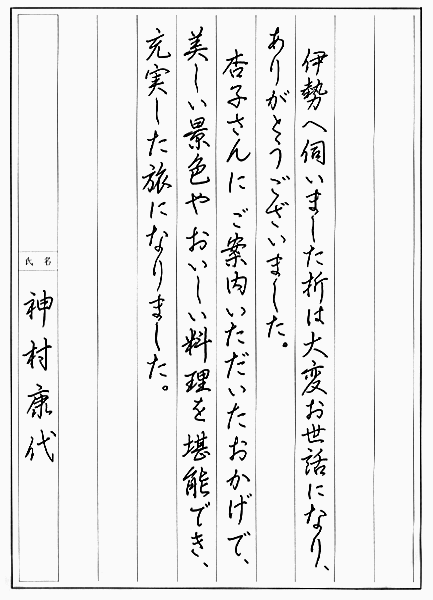 伊勢へ伺いました折は大変お世話になり、
ありがとうございました。
杏子さんにご案内いただいたおかげで、
美しい景色やおいしい料理を堪能でき、
充実した旅になりました。
氏名
神村康代